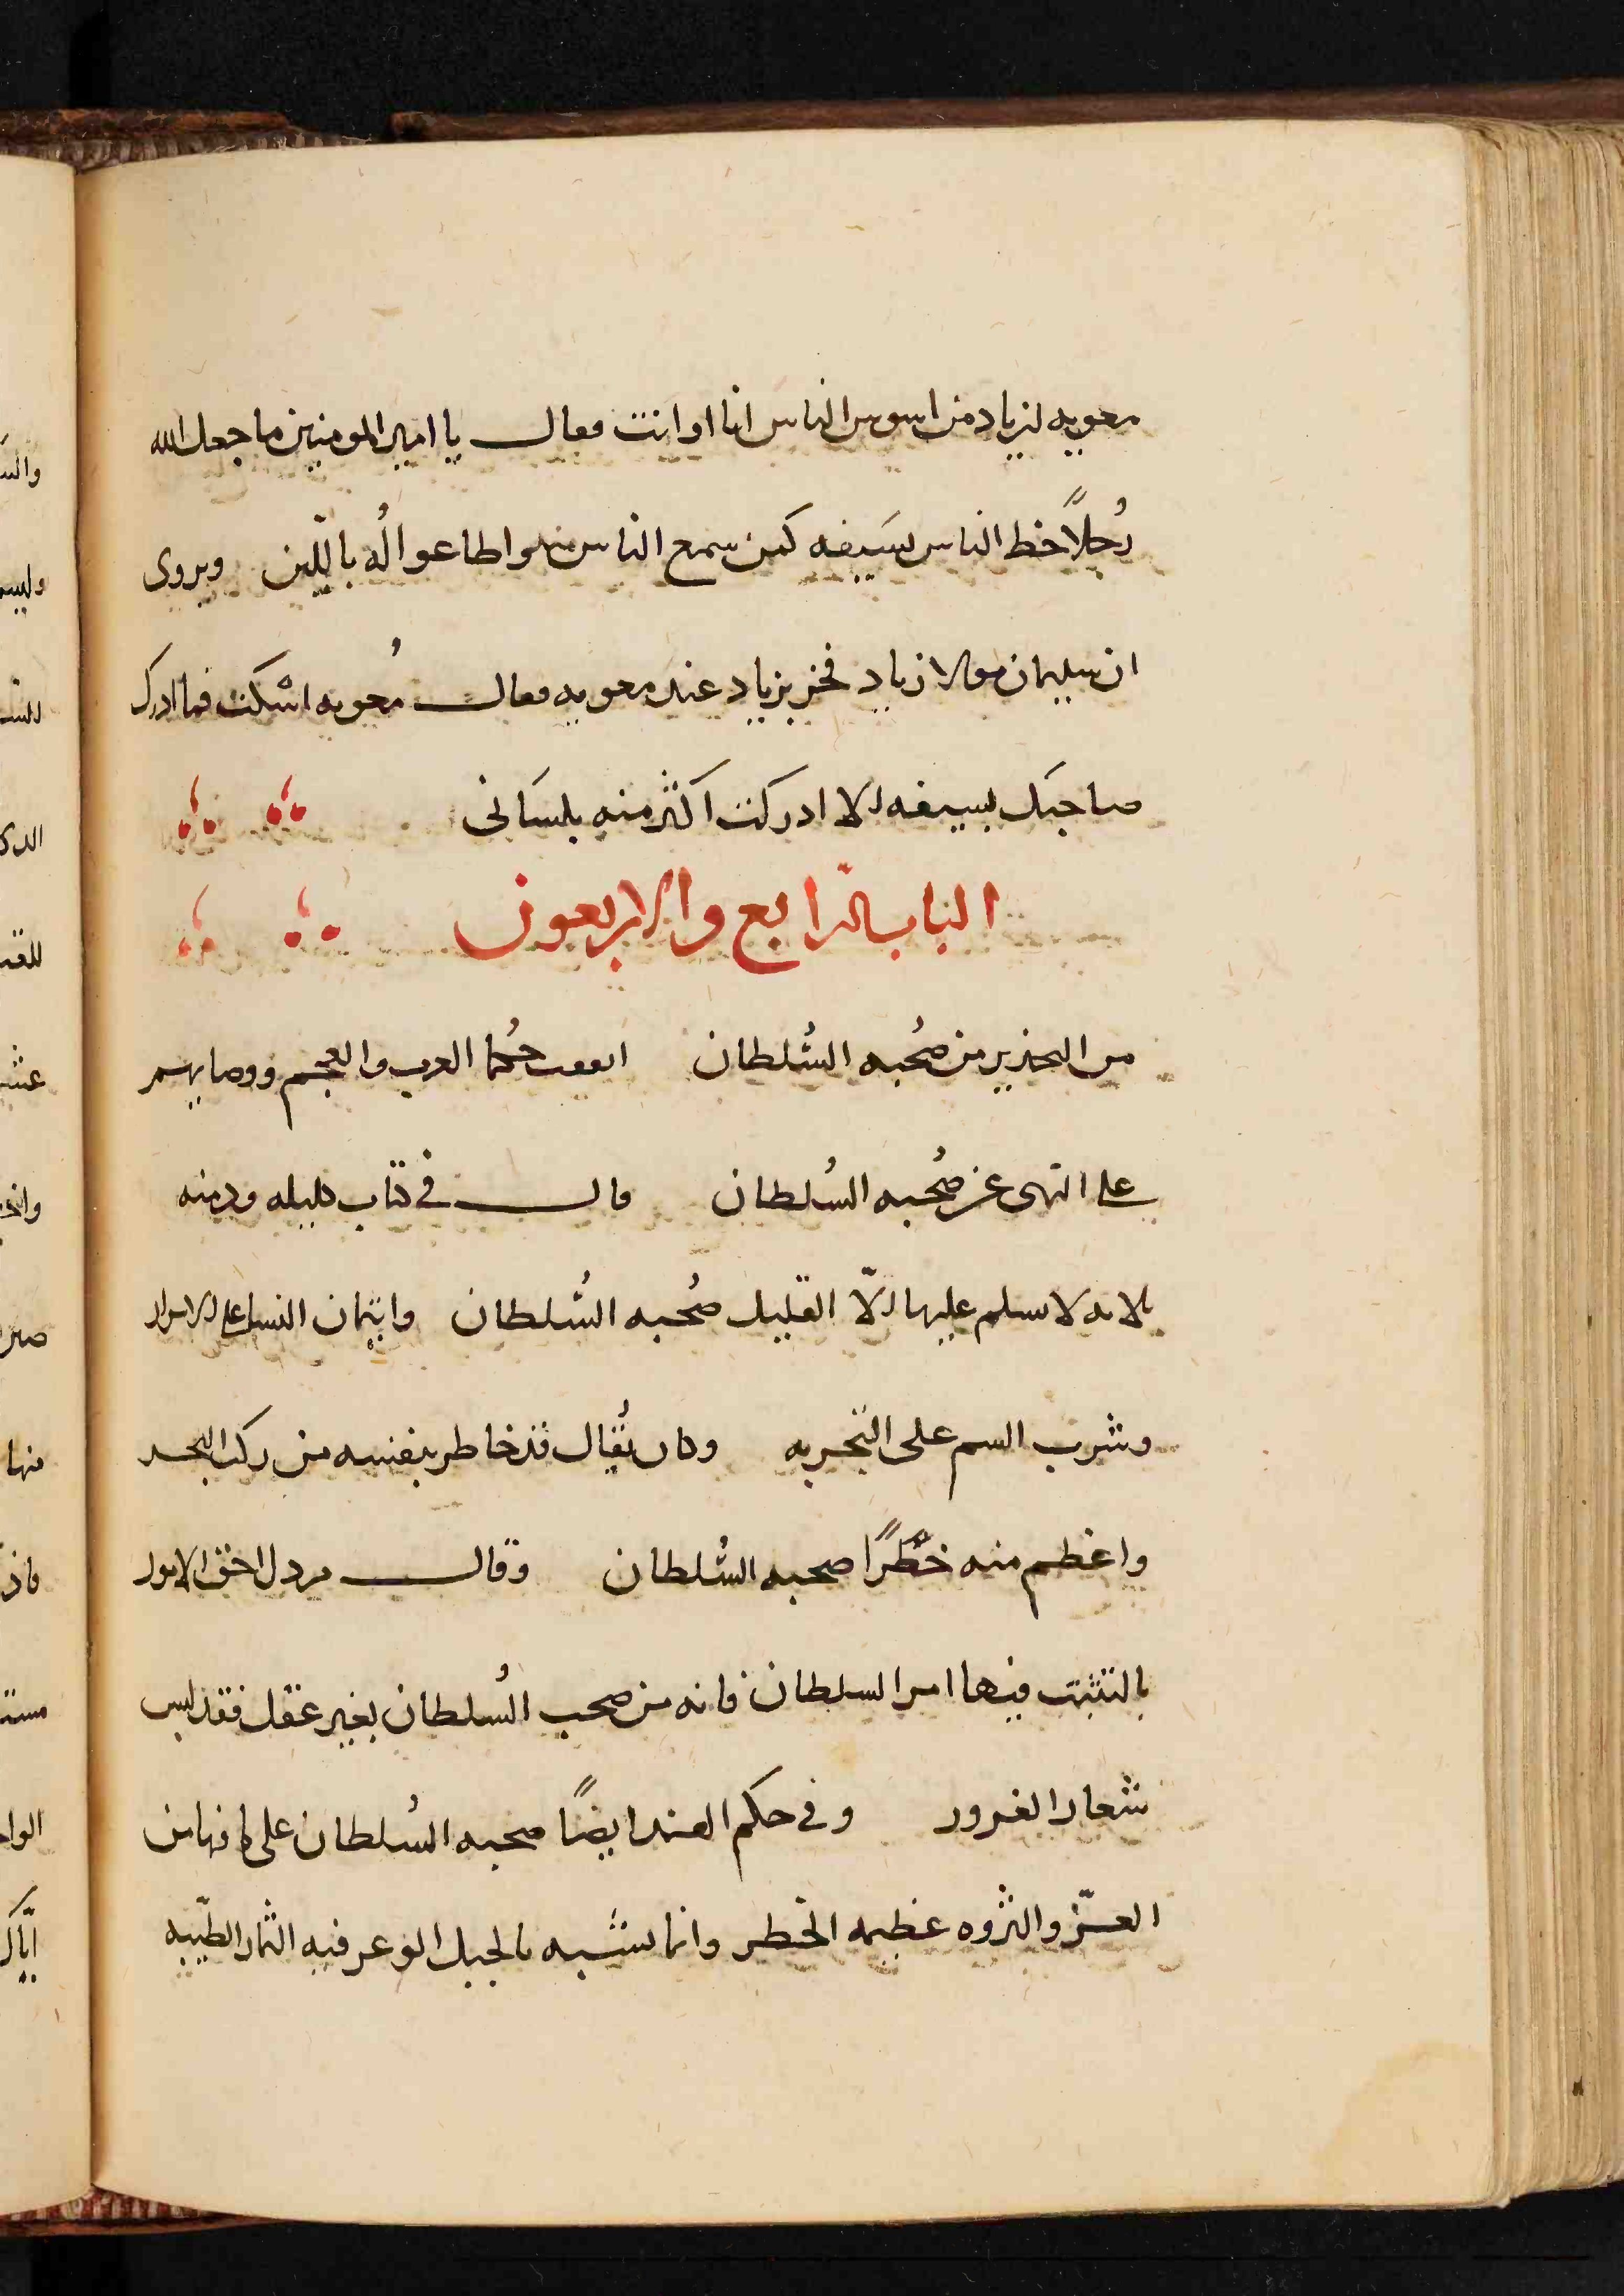 معويه لزياد من اسوس الناس انا او انت فقال يا امير المومنين ما جعل الله
رُجلاً حط الناس بسَيفه كمن سمع الناس منه واطاعوا لُه باللين ويروى
ان سليمان مولا زياد فخر بزياد عند معويه فقال مُعويه اسْكت فما ادرك
صاحبك بسيفه الا ادركت اكثر منه بلسَانى
الباب الرابع والاربعون
من التحذير من صُحبه السُلطان اتفقت حُكما العرب والعجم ووصايهم
على النهى عن صُحبه السُلطان قال فى كتاب كليله ودمنه
ثلاثه لا يسلم عليها الّا القليل صُحبه السُلطان وايتمان النسا على الاسرار
وشرب السم على التجربه وكان يُقال قد خاطر بنفسه من ركب البحر
واعظم منه خَطَرًا صحبه السُلطان وقال مردك احق الامور
بالتثبت فيها امر السلطان فانه من صحب السُلطان بغير عقل فقد لبس
شعار الغرور وفى حكم الهند ايضًا صحبه السُلطان على ما فيها من
العزّ والثروه عظيمه الخطر وانما تشبه بالجبل الوعر فيه الثمار الطيّبه